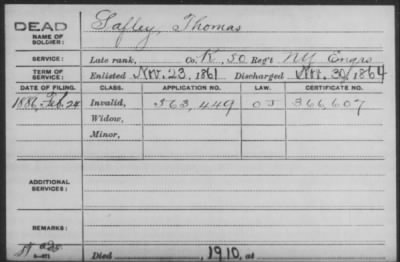 DEAD Safley, Thomas
NAME OF SOLDIER:
SERVICE: Late rank, Co. K, 50 Reg't NY Engrs
TERM OF SERVICE: Enlisted Nov. 23, 1861 Discharged Nov. 30, 1864
DATE OF FILING. CLASS. APPLICATION NO. LAW. CERTIFICATE NO.
1886, Feb. 24 Invalid, 563,449 366,607
Widow,
Minor,
ADDITIONAL SERVICES:
REMARKS:
Died 1910, at